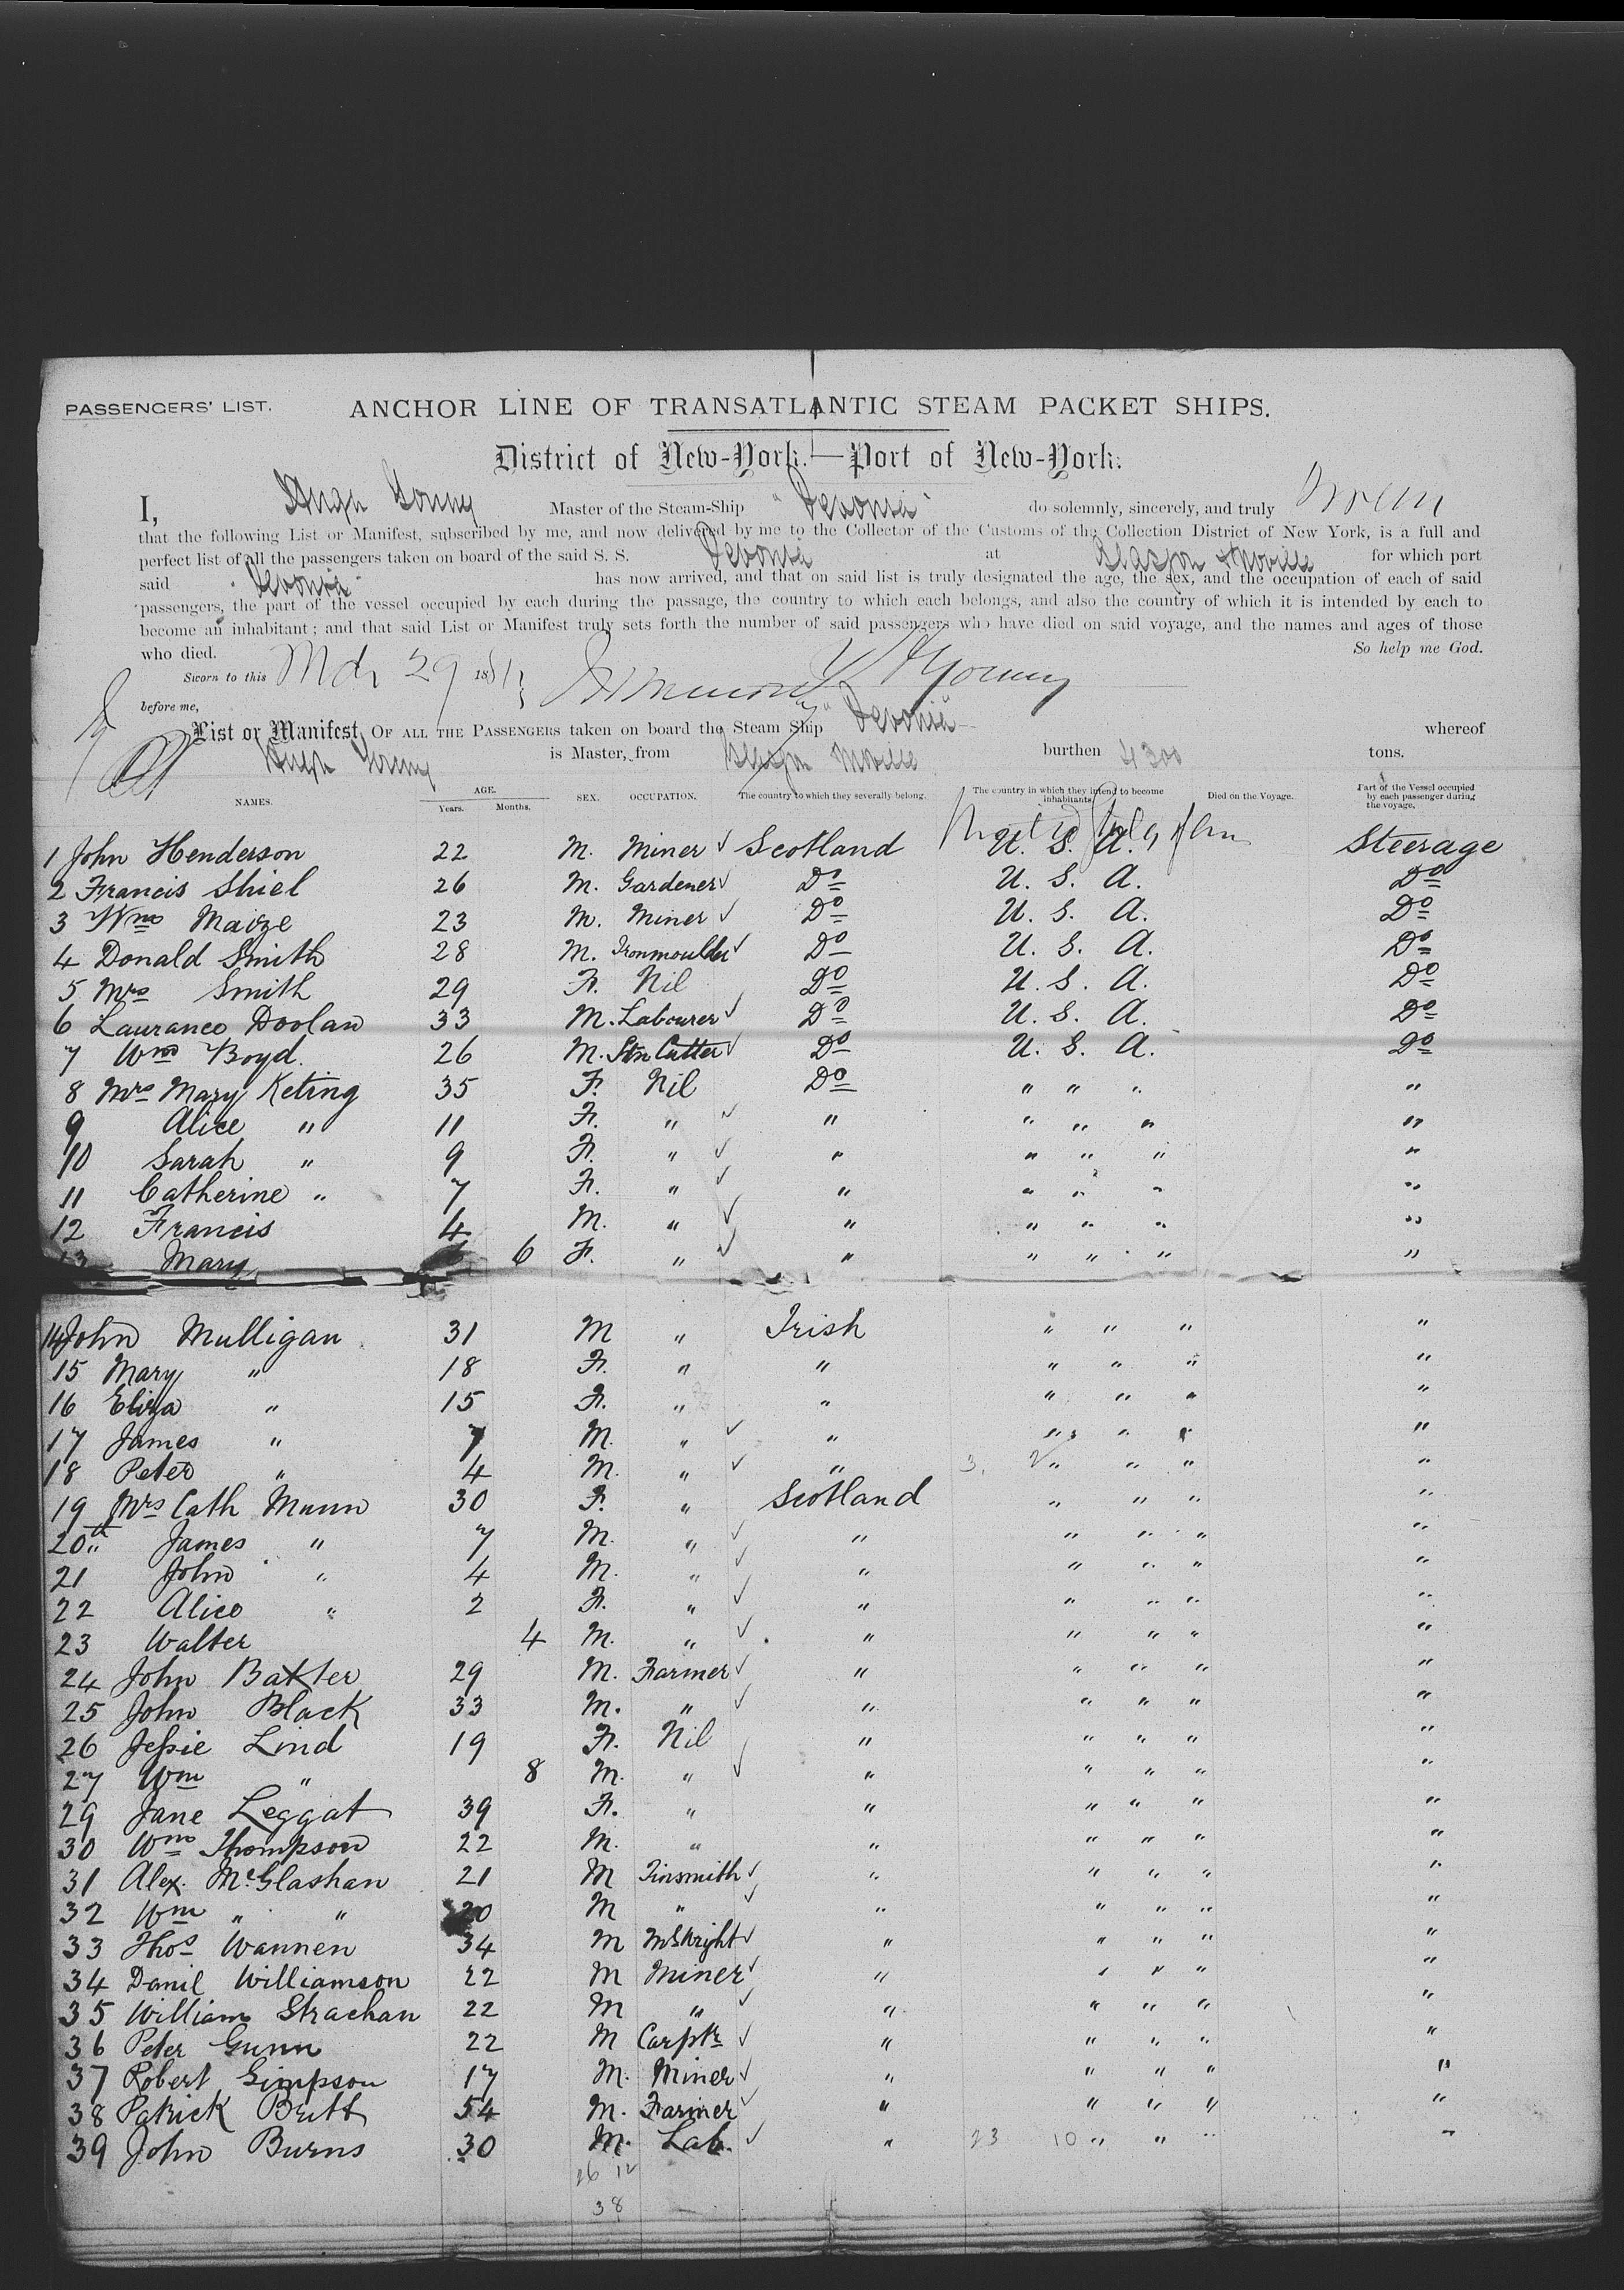 PASSENGERS' LIST.
ANCHOR LINE OF TRANSATLANTIC STEAM PACKET SHIPS.
District of New-York.—Port of New-York.
I, Hugh Young Master of the Steam-Ship "Devonia" do solemnly, sincerely, and truly swear
that the following List or Manifest, subscribed by me, and now delivered by me to the Collector of the Customs of the Collection District of New York, is a full and
perfect list of all the passengers taken on board of the said S. S. Devonia at Glasgow & Moville for which port
said "Devonia" has now arrived, and that on said list is truly designated the age, the sex, and the occupation of each of said
passengers, the part of the vessel occupied by each during the passage, the country to which each belongs, and also the country of which it is intended by each to
become an inhabitant; and that said List or Manifest truly sets forth the number of said passengers who have died on said voyage, and the names and ages of those
who died. So help me God.
Sworn to this Mch 29 1881 H Young
before me,
List or Manifest OF ALL THE PASSENGERS taken on board the Steam Ship "Devonia" whereof
Hugh Young is Master, from Glasgow Moville burthen 4300 tons.
NAMES. AGE. Years. Months. SEX. OCCUPATION. The country to which they severally belong. The country in which they intend to become inhabitants. Died on the Voyage. Part of the Vessel occupied by each passenger during the voyage.
1 John Henderson 22 M. Miner ✓ Scotland U. S. A. Steerage
2 Francis Shiel 26 M. Gardener ✓ Do U. S. A. Do
3 Wm Maize 23 M. Miner ✓ Do U. S. A. Do
4 Donald Smith 28 M. Ironmoulder ✓ Do U. S. A. Do
5 Mrs Smith 29 F. Nil Do U. S. A. Do
6 Laurance Doolan 33 M. Labourer ✓ Do U. S. A. Do
7 Wm Boyd. 26 M. Stn Cutter ✓ Do U. S. A. Do
8 Mrs Mary Keting 35 F. Nil Do " " " "
9 Alice " 11 F. " ✓ " " " " "
10 Sarah " 9 F. " ✓ " " " " "
11 Catherine " 7 F. " ✓ " " " " "
12 Francis 4 M. " ✓ " " " " "
13 Mary 6 F. " ✓ " " " " "
14 John Mulligan 31 M " Irish " " " "
15 Mary " 18 F. " " " " " "
16 Eliza " 15 F. " " " " " "
17 James " 7 M. " ✓ " " " " "
18 Peter " 4 M. " ✓ " 3. 2 " " " "
19 Mrs Cath Munn 30 F. " Scotland " " " "
20 " James " 7 M. " ✓ " " " " "
21 John " 4 M. " ✓ " " " " "
22 Alice " 2 F. " ✓ " " " " "
23 Walter 4 M. " ✓ " " " " "
24 John Baxter 29 M. Farmer ✓ " " " " "
25 John Black 33 M. " ✓ " " " " "
26 Jessie Lind 19 F. Nil " " " " "
27 Wm " 8 M. " ✓ " " " " "
29 Jane Leggat 39 F. " " " " " "
30 Wm Thompson 22 M. " " " " " "
31 Alex. McGlashan 21 M Tinsmith ✓ " " " " "
32 Wm " " 20 M " ✓ " " " " "
33 Thos Wannen 34 M MlWright ✓ " " " " "
34 Danil Williamson 22 M Miner ✓ " " " " "
35 William Strachan 22 M " ✓ " " " " "
36 Peter Gunn 22 M Carptr ✓ " " " " "
37 Robert Simpson 17 M. Miner ✓ " " " " "
38 Patrick Britt 54 M. Farmer ✓ " " " " "
39 John Burns 30 M. Lab. ✓ " 23 10 " " " "
26 12
38